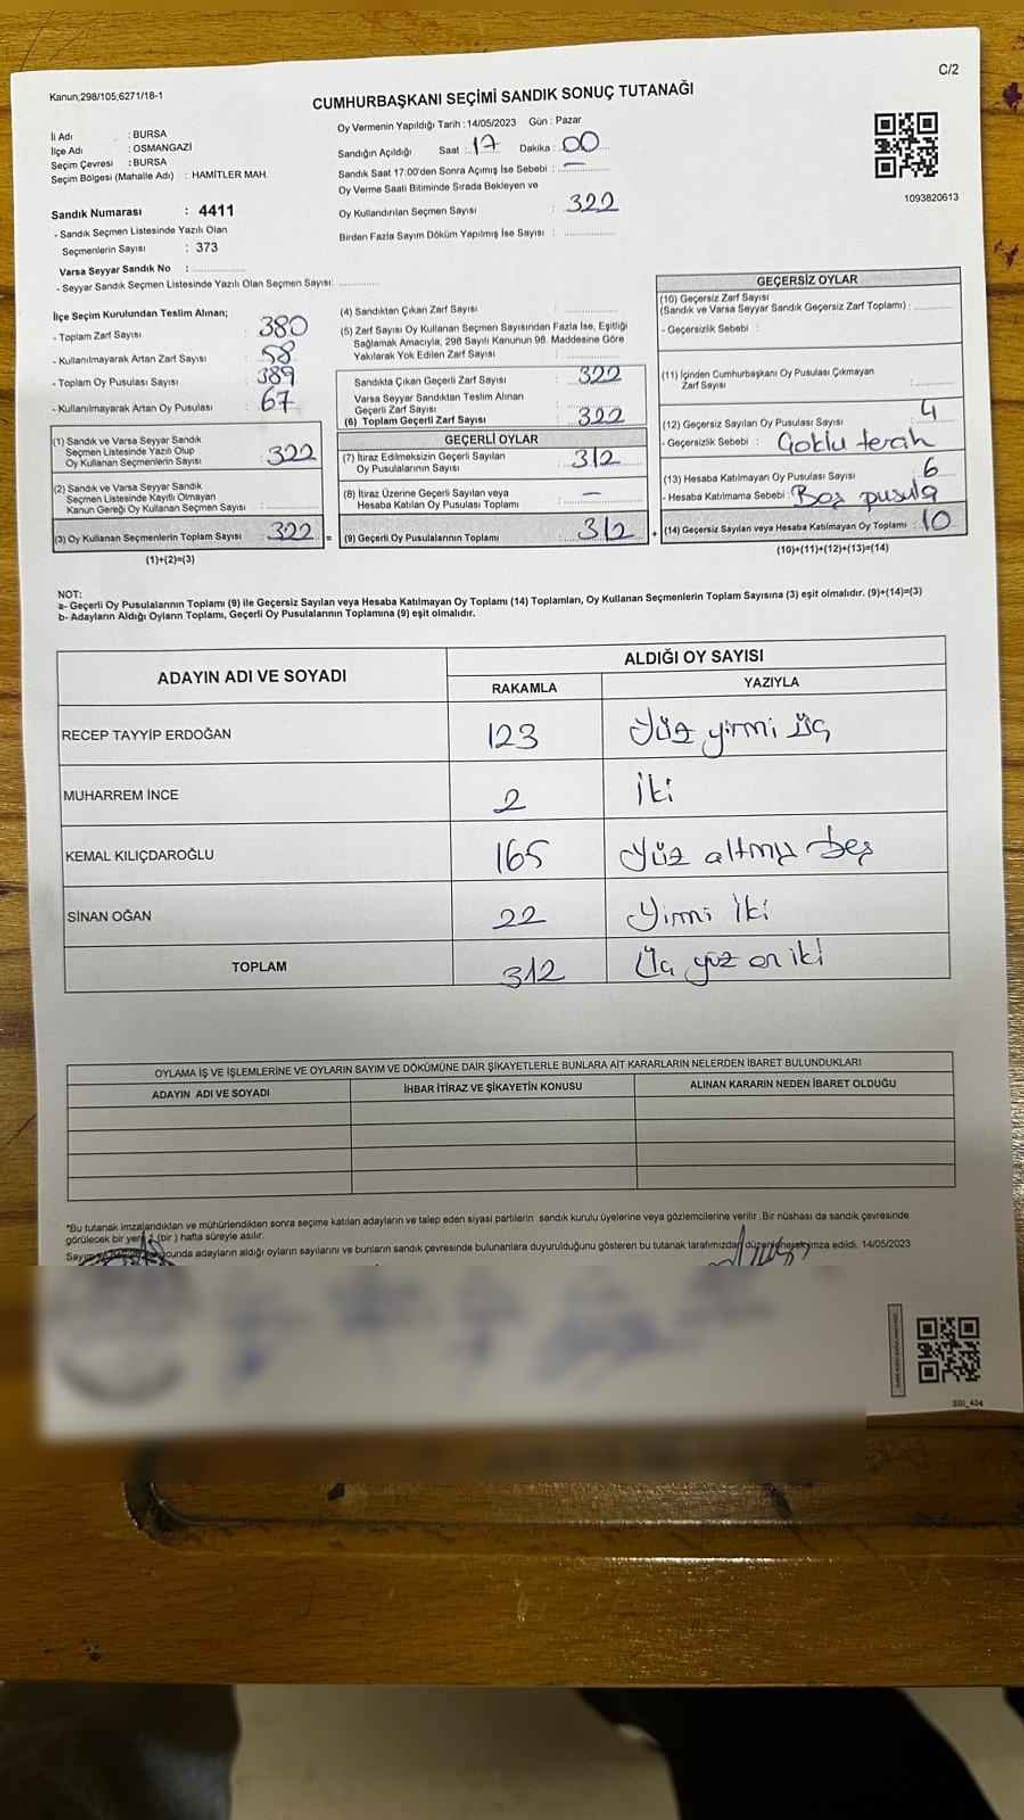 Kanun,298/105,6271/18-1
C/2
CUMHURBAŞKANI SEÇİMİ SANDIK SONUÇ TUTANAĞI
İl Adı : BURSA
İlçe Adı : OSMANGAZİ
Seçim Çevresi : BURSA
Seçim Bölgesi (Mahalle Adı) : HAMİTLER MAH.
Sandık Numarası : 4411
- Sandık Seçmen Listesinde Yazılı Olan
Seçmenlerin Sayısı : 373
Varsa Seyyar Sandık No :
- Seyyar Sandık Seçmen Listesinde Yazılı Olan Seçmen Sayısı:
Oy Vermenin Yapıldığı Tarih : 14/05/2023 Gün : Pazar
Sandığın Açıldığı Saat : 17 Dakika : 00
Sandık Saat 17:00'den Sonra Açımış İse Sebebi : —
Oy Verme Saati Bitiminde Sırada Bekleyen ve
Oy Kullandırılan Seçmen Sayısı : 322
Birden Fazla Sayım Döküm Yapılmış İse Sayısı :
1093820613
İlçe Seçim Kurulundan Teslim Alınan;
- Toplam Zarf Sayısı : 380
- Kullanılmayarak Artan Zarf Sayısı : 58
- Toplam Oy Pusulası Sayısı : 389
- Kullanılmayarak Artan Oy Pusulası : 67
(1) Sandık ve Varsa Seyyar Sandık
Seçmen Listesinde Yazılı Olup
Oy Kullanan Seçmenlerin Sayısı : 322
(2) Sandık ve Varsa Seyyar Sandık
Seçmen Listesinde Kayıtlı Olmayan
Kanun Gereği Oy Kullanan Seçmen Sayısı :
(3) Oy Kullanan Seçmenlerin Toplam Sayısı : 322
(1)+(2)=(3)
(4) Sandıktan Çıkan Zarf Sayısı :
(5) Zarf Sayısı Oy Kullanan Seçmen Sayısından Fazla İse, Eşitliği
Sağlamak Amacıyla, 298 Sayılı Kanunun 98. Maddesine Göre
Yakılarak Yok Edilen Zarf Sayısı :
Sandıkta Çıkan Geçerli Zarf Sayısı : 322
Varsa Seyyar Sandıktan Teslim Alınan
Geçerli Zarf Sayısı :
(6) Toplam Geçerli Zarf Sayısı : 322
GEÇERLİ OYLAR
(7) İtiraz Edilmeksizin Geçerli Sayılan
Oy Pusulalarının Sayısı : 312
(8) İtiraz Üzerine Geçerli Sayılan veya
Hesaba Katılan Oy Pusulası Toplamı : —
= (9) Geçerli Oy Pusulalarının Toplamı : 312
GEÇERSİZ OYLAR
(10) Geçersiz Zarf Sayısı
(Sandık ve Varsa Seyyar Sandık Geçersiz Zarf Toplamı) :
- Geçersizlik Sebebi :
(11) İçinden Cumhurbaşkanı Oy Pusulası Çıkmayan
Zarf Sayısı :
(12) Geçersiz Sayılan Oy Pusulası Sayısı : 4
- Geçersizlik Sebebi : Çoklu tercih
(13) Hesaba Katılmayan Oy Pusulası Sayısı : 6
- Hesaba Katılmama Sebebi : Boş pusula
+ (14) Geçersiz Sayılan veya Hesaba Katılmayan Oy Toplamı : 10
(10)+(11)+(12)+(13)=(14)
NOT:
a- Geçerli Oy Pusulalarının Toplamı (9) ile Geçersiz Sayılan veya Hesaba Katılmayan Oy Toplamı (14) Toplamları, Oy Kullanan Seçmenlerin Toplam Sayısına (3) eşit olmalıdır. (9)+(14)=(3)
b- Adayların Aldığı Oyların Toplamı, Geçerli Oy Pusulalarının Toplamına (9) eşit olmalıdır.
ADAYIN ADI VE SOYADI
ALDIĞI OY SAYISI
RAKAMLA YAZIYLA
RECEP TAYYİP ERDOĞAN 123 Yüz yirmi üç
MUHARREM İNCE 2 İki
KEMAL KILIÇDAROĞLU 165 Yüz altmış beş
SİNAN OĞAN 22 Yirmi İki
TOPLAM 312 Üç yüz on iki
OYLAMA İŞ VE İŞLEMLERİNE VE OYLARIN SAYIM VE DÖKÜMÜNE DAİR ŞİKAYETLERLE BUNLARA AİT KARARLARIN NELERDEN İBARET BULUNDUKLARI
ADAYIN ADI VE SOYADI İHBAR İTİRAZ VE ŞİKAYETİN KONUSU ALINAN KARARIN NEDEN İBARET OLDUĞU
*Bu tutanak imzalandıktan ve mühürlendikten sonra seçime katılan adayların ve talep eden siyasi partilerin sandık kurulu üyelerine veya gözlemcilerine verilir. Bir nüshası da sandık çevresinde
görülecek bir yere 1 (bir) hafta süreyle asılır.
adayların aldığı oyların sayılarını ve bunların sandık çevresinde bulunanlara duyurulduğunu gösteren bu tutanak tarafımızdan düzenlenerek imza edildi. 14/05/2023